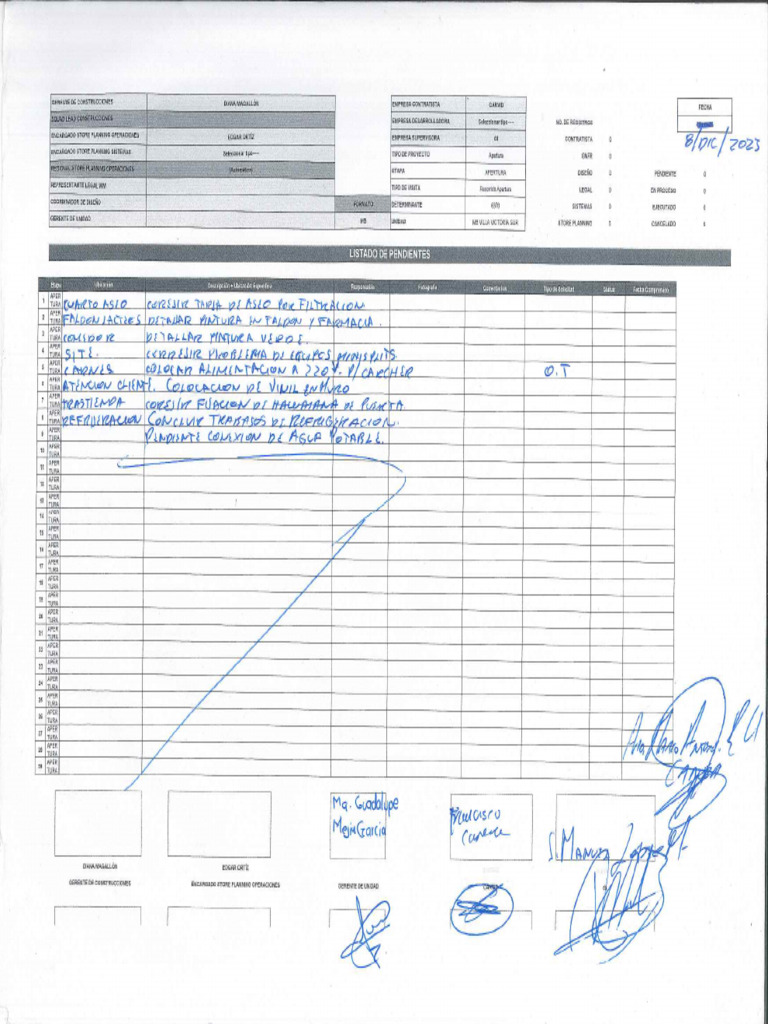 GERENTE DE CONSTRUCCIONES DIANA MAGALLÓN
SQUAD LEAD CONSTRUCCIONES
ENCARGADO STORE PLANNING OPERACIONES EDGAR ORTÍZ
ENCARGADO STORE PLANNING SISTEMAS Seleccionar tipo----
REGIONAL STORE PLANNING OPERACIONES
REPRESENTANTE LEGAL WM
COORDINADOR DE DISEÑO FORMATO
GERENTE DE UNIDAD MB
EMPRESA CONTRATISTA
EMPRESA DESARROLLADORA Seleccionar tipo----
EMPRESA SUPERVISORA
TIPO DE PROYECTO Apertura
ETAPA APERTURA
TIPO DE VISITA Recorrido Apertura
DETERMINANTE
UNIDAD MB VILLA VICTORIA SUR
NO. DE REGISTROS
CONTRATISTA 0
DISEÑO 0 PENDIENTE 0
LEGAL 0 EN PROCESO 0
SISTEMAS 0 EJECUTADO 0
STORE PLANNING 0 CANCELADO 0
FECHA
8/DIC/2023
LISTADO DE PENDIENTES
Etapa Ubicación Descripción + Ubicación Específica Responsable Fotografía Comentarios Tipo de Solicitud Status Fecha Compromiso
1 APERTURA CUARTO ASEO CORREGIR TARJA DE ASEO POR FILTRACION
2 APERTURA FALDON DETALLAR PINTURA EN FALDON Y FARMACIA.
3 APERTURA COMEDOR DETALLAR PINTURA VERDE.
4 APERTURA SITE. CORREGIR PROBLEMA DE EQUIPOS MINISPLITS
5 APERTURA CARNES COLOCAR ALIMENTACION A 220V. P/CARCHER O.T
6 APERTURA ATENCION CLIENTE. COLOCACION DE VINIL EN MURO
7 APERTURA TRASTIENDA CORREGIR FIJACION DE HAWAIANA DE PUERTA
8 APERTURA REFRIGERACION CONCLUIR TRABAJOS DE REFRIGERACION.
9 APERTURA PENDIENTE CONEXION DE AGUA POTABLE.
10 APERTURA
11 APERTURA
12 APERTURA
13 APERTURA
14 APERTURA
15 APERTURA
16 APERTURA
17 APERTURA
18 APERTURA
19 APERTURA
20 APERTURA
21 APERTURA
22 APERTURA
23 APERTURA
24 APERTURA
25 APERTURA
26 APERTURA
27 APERTURA
28 APERTURA
29 APERTURA
Ma. Guadalupe
Mejia Garcia
Francisco
S. Manuel
DIANA MAGALLÓN EDGAR ORTÍZ
GERENTE DE CONSTRUCCIONES ENCARGADO STORE PLANNING OPERACIONES GERENTE DE UNIDAD